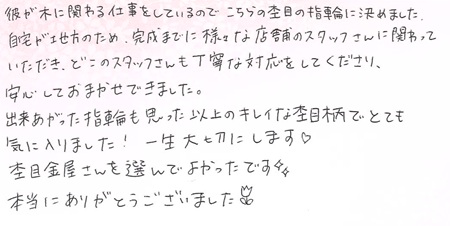 彼が木に関わる仕事をしているので こちらの杢目の指輪に決めました。
自宅が地方のため、完成までに様々な店舗のスタッフさんに関わって
いただき、どこのスタッフさんも丁寧な対応をしてくださり、
安心しておまかせできました。
出来あがった指輪も思った以上のキレイな杢目柄でとても
気に入りました！ 一生大切にします♡
杢目金屋さんを選んでよかったです
本当にありがとうございました